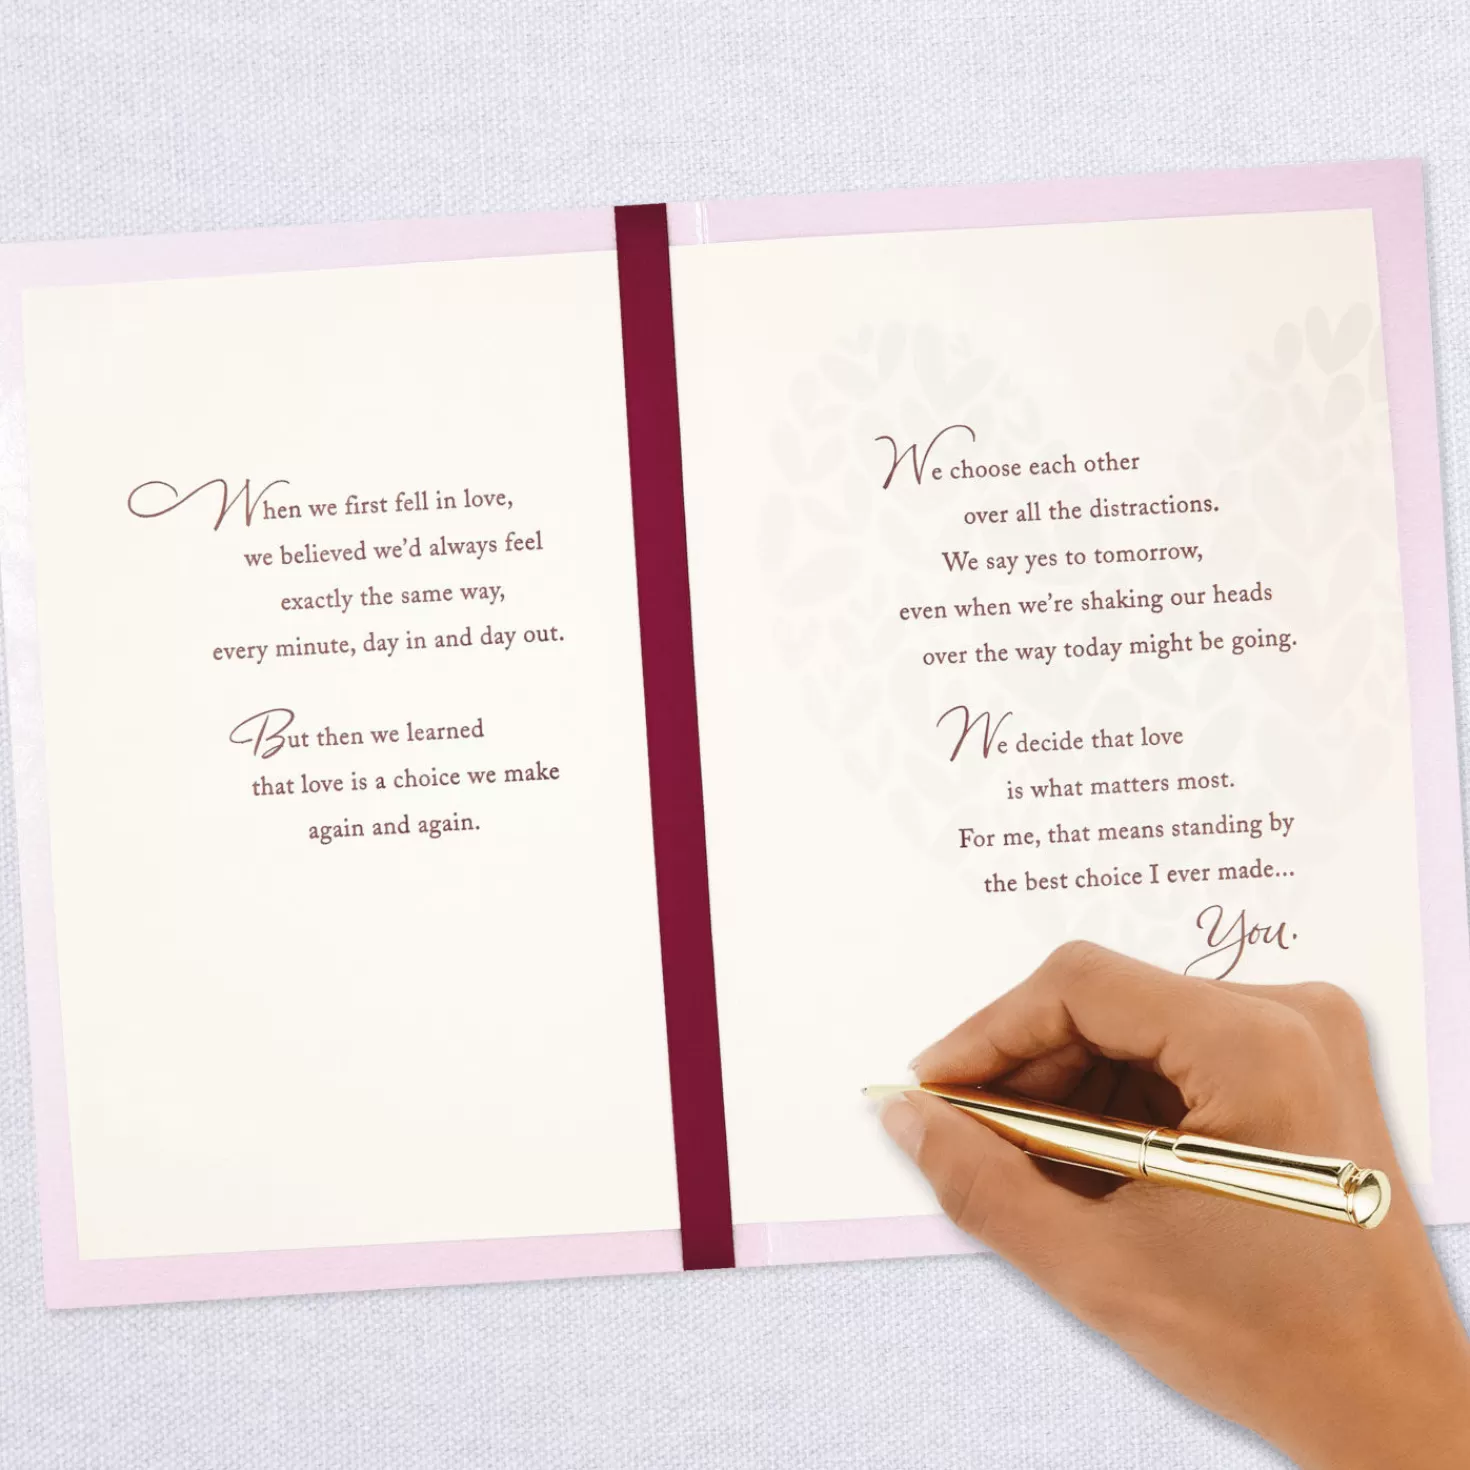 When we first fell in love,
we believed we’d always feel
exactly the same way,
every minute, day in and day out.
But then we learned
that love is a choice we make
again and again.
We choose each other
over all the distractions.
We say yes to tomorrow,
even when we’re shaking our heads
over the way today might be going.
We decide that love
is what matters most.
For me, that means standing by
the best choice I ever made...
You.